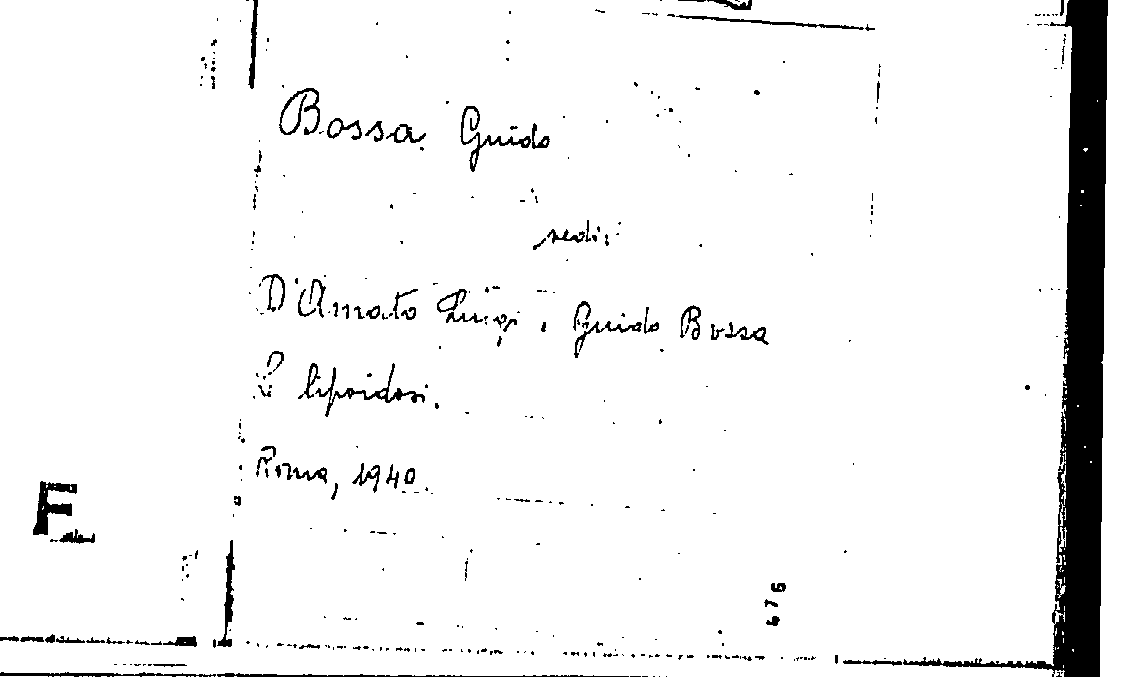 Bossa Guido
vedi:
D'Amato Luigi, Guido Bossa
lipoidosi.
Roma, 1940.
E
676